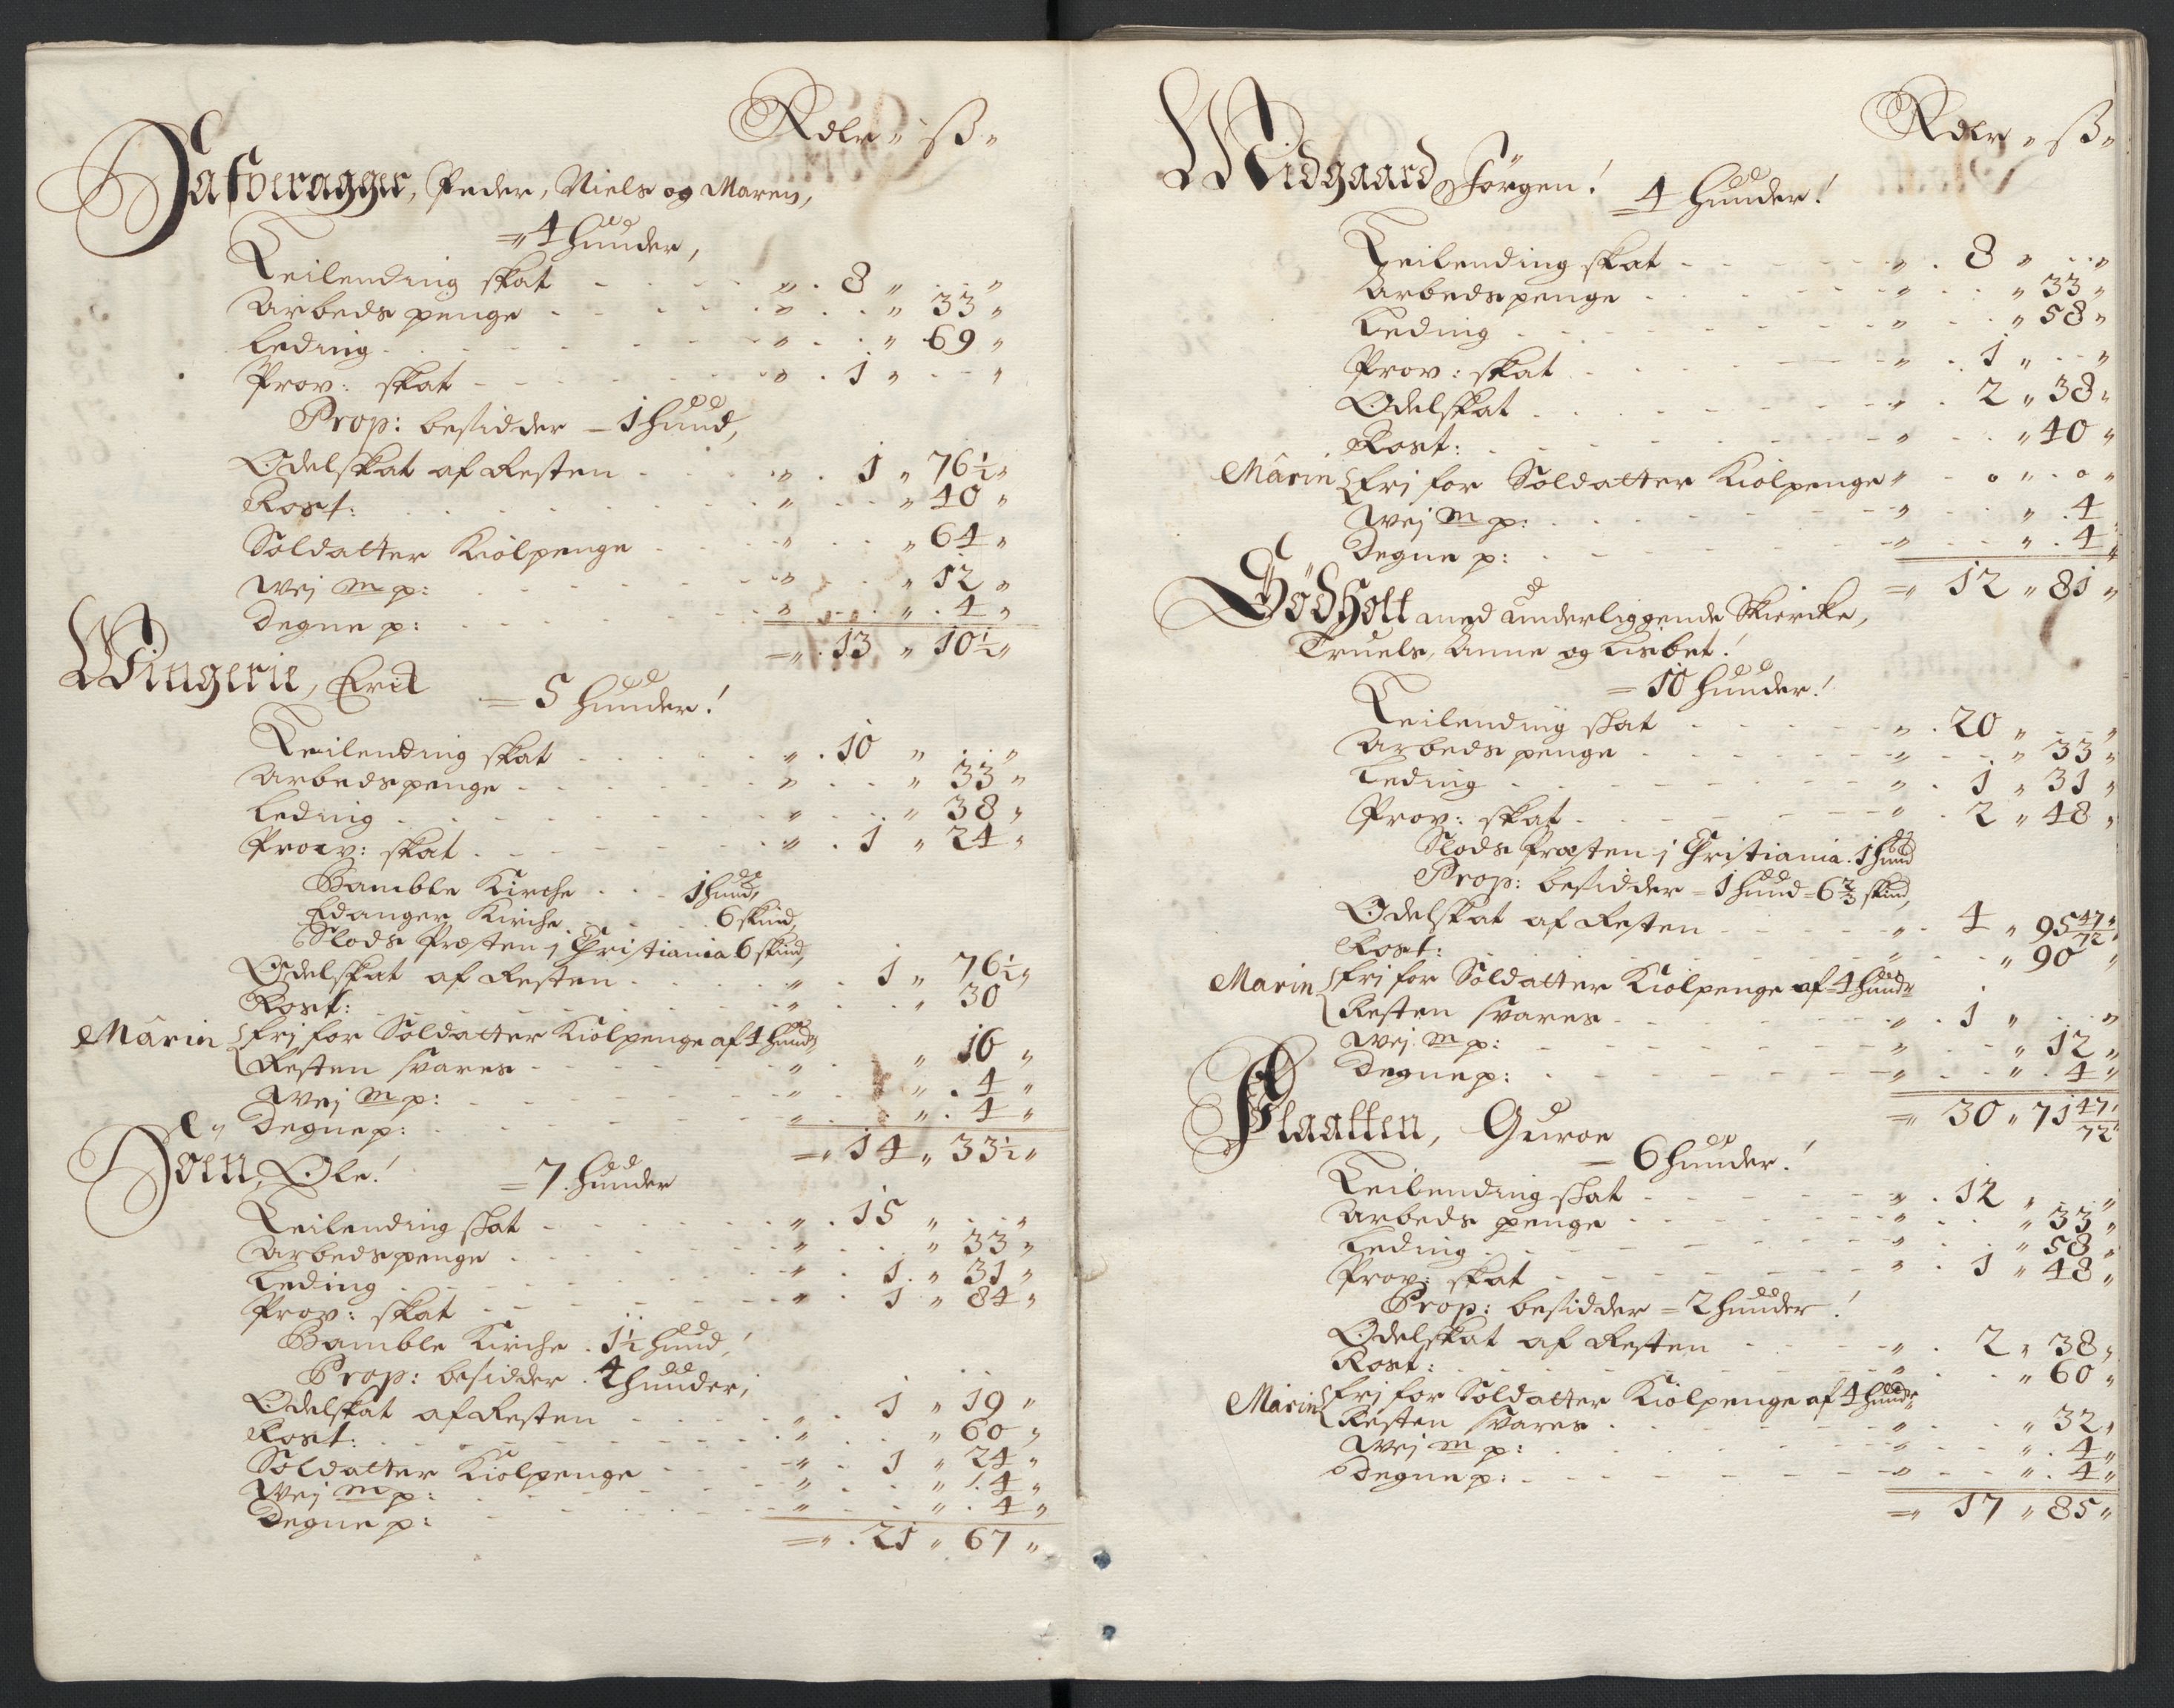 Rdlr „ ß „
Hafveragger, Peder, Niels og Maren,
= 4 huuder,
Leilending skat „ 8 „ „
Arbeds penge „ „ 33 „
Leding „ „ 69 „
Prov: skat „ 1 „ „
Prop: besidder – 1 huud,
Odelskat af Resten „ 1 „ 76½ „
Rost: „ „ 40 „
Soldatter Kiolpenge „ „ 64 „
Wej m p: „ „ 12 „
Degne p: „ „ 4 „
= 13 „ 10½ „
Wingerie, Erick
= 5 huuder!
Leilending skat „ 10 „ „
Arbedspenge „ „ 33 „
Leding „ „ 38 „
Prov: skat „ 1 „ 24 „
Bamble Kirche 1 huud,
Edanger Kirche 6 skind,
Slods Præsten j Christiania 6 skind,
Odelskat af Resten „ 1 „ 76½ „
Rost: „ „ 30
Marin fri for Soldatter Kiolpenge af 4 huudr
Resten svares „ „ 16 „
Wej m p: „ „ 4 „
Degne p: „ „ 4 „
= 14 „ 33½ „
Hoen, Ole!
= 7 huuder
Leilending skat „ 15 „ „
Arbedspenge „ „ 33 „
Leding „ 1 „ 31 „
Prov: skat „ 1 „ 84 „
Bamble Kirche 1½ huud,
Prop: besidder 4 huuder,
Odelskat af Resten „ 1 „ 19 „
Rost: „ „ 60 „
Soldatter Kiolpenge „ 1 „ 24 „
Wej m p: „ „ 4 „
Degne p: „ „ 4 „
= 21 „ 67 „
Rdlr „ ß „
Midgaard Jörgen!
= 4 huuder!
Leilending skat „ 8 „ „
Arbedspenge „ „ 33 „
Leding „ „ 58 „
Prov: skat „ 1 „ „
Odelskat „ 2 „ 38 „
Rost: „ „ 40 „
Marin fri for Soldatter Kiolpenge „ 0 „ 0 „
Wej m p: „ „ 4
Degne p: „ „ 4 „
= 12 „ 81 „
Gödholt med underliggende Skiercke,
Truels, Anne og Lisbet!
= 10 huuder!
Leilending skat „ 20 „ „
Arbeds penge „ „ 33 „
Leding „ 1 „ 31 „
Prov: skat „ 2 „ 48 „
Slods Præsten j Christiania 1 huud
Prop: besidder = 1 huud = 6 2/3 skind,
Odelskat af Resten „ 4 „ 95 47/72 „
Rost: „ „ 90 „
Marin fri for Soldatter Kiolpenge af 4 huudr
Resten svares „ 1 „ „
Wej m p: „ „ 12 „
Degne p: „ „ 4 „
= 30 „ 71 47/72 „
Flaatten, Guroe
= 6 huuder!
Leilending skat „ 12 „ „
Arbeds penge „ „ 33 „
Leding „ „ 58 „
Prov: skat „ 1 „ 48 „
Prop: besidder = 2 huuder!
Odelskat af Resten „ 2 „ 38 „
Rost: „ „ 60 „
Marin fri for Soldatter Kiolpenge af 4 huudr
Resten svares „ „ 32 „
Wej m p: „ „ 4 „
Degne p: „ „ 4 „
= 17 „ 85 „